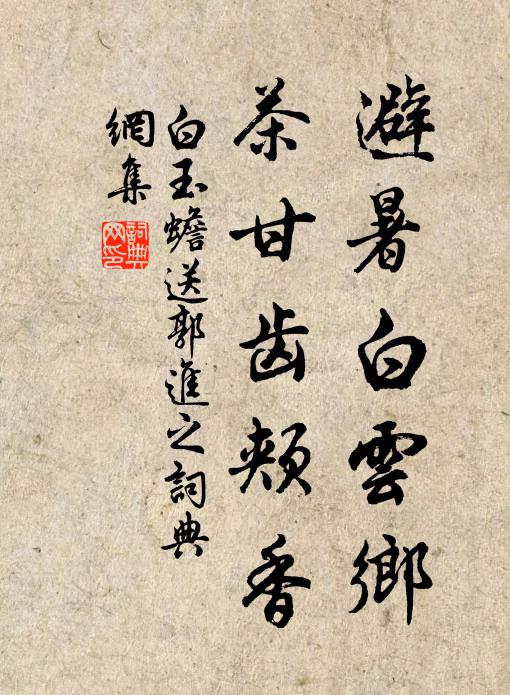 避暑白雲鄉
茶甘齿頰香
白玉蟾送郭進之詞典
網集
詞典
网印